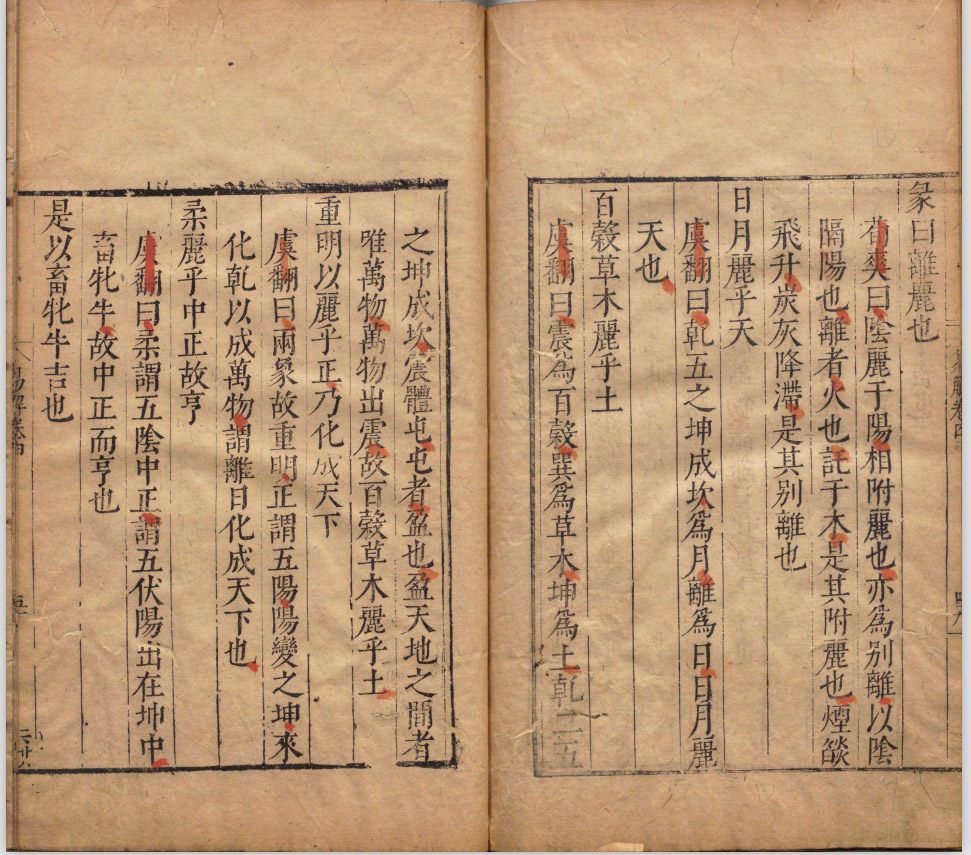 彖曰離麗也
荀爽曰陰麗于陽相附麗也亦為别離以陰
隔陽也離者火也託于木是其附麗也煙燄
飛升炭灰降滯是其别離也
日月麗乎天
虞翻曰乾五之坤成坎為月離為日日月麗
天也
百穀草木麗乎土
虞翻曰震為百穀巽為草木坤為土乾二五
之坤成坎震體屯屯者盈也盈天地之間者
唯萬物萬物出震故百穀草木麗乎土
重明以麗乎正乃化成天下
虞翻曰兩象故重明正謂五陽陽變之坤來
化乾以成萬物謂離日化成天下也
柔麗乎中正故亨
虞翻曰柔謂五陰中正謂五伏陽出在坤中
畜牝牛故中正而亨也
是以畜牝牛吉也